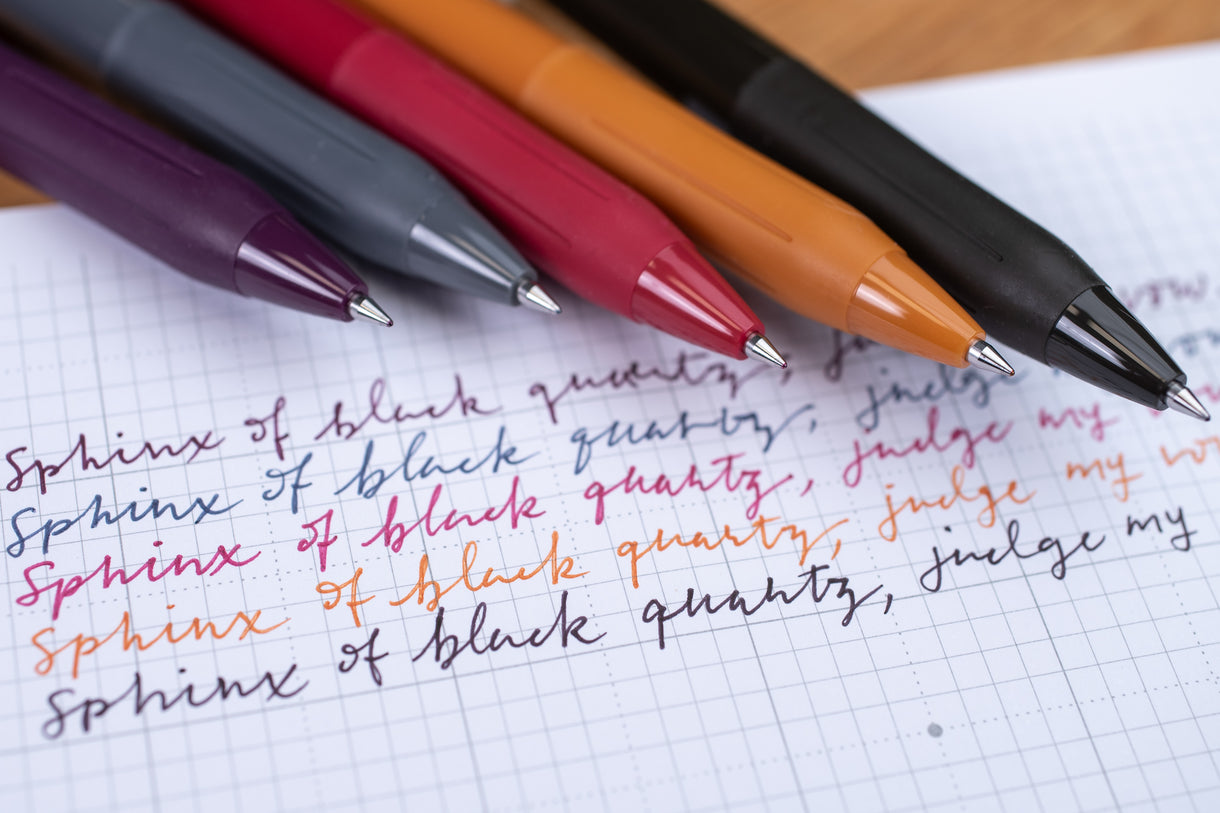 Sphinx of black quartz, vow.
Sphinx of black quartz, judge
Sphinx of black quartz, judge my
Sphinx of black quartz, judge my
Sphinx of black quartz, judge my